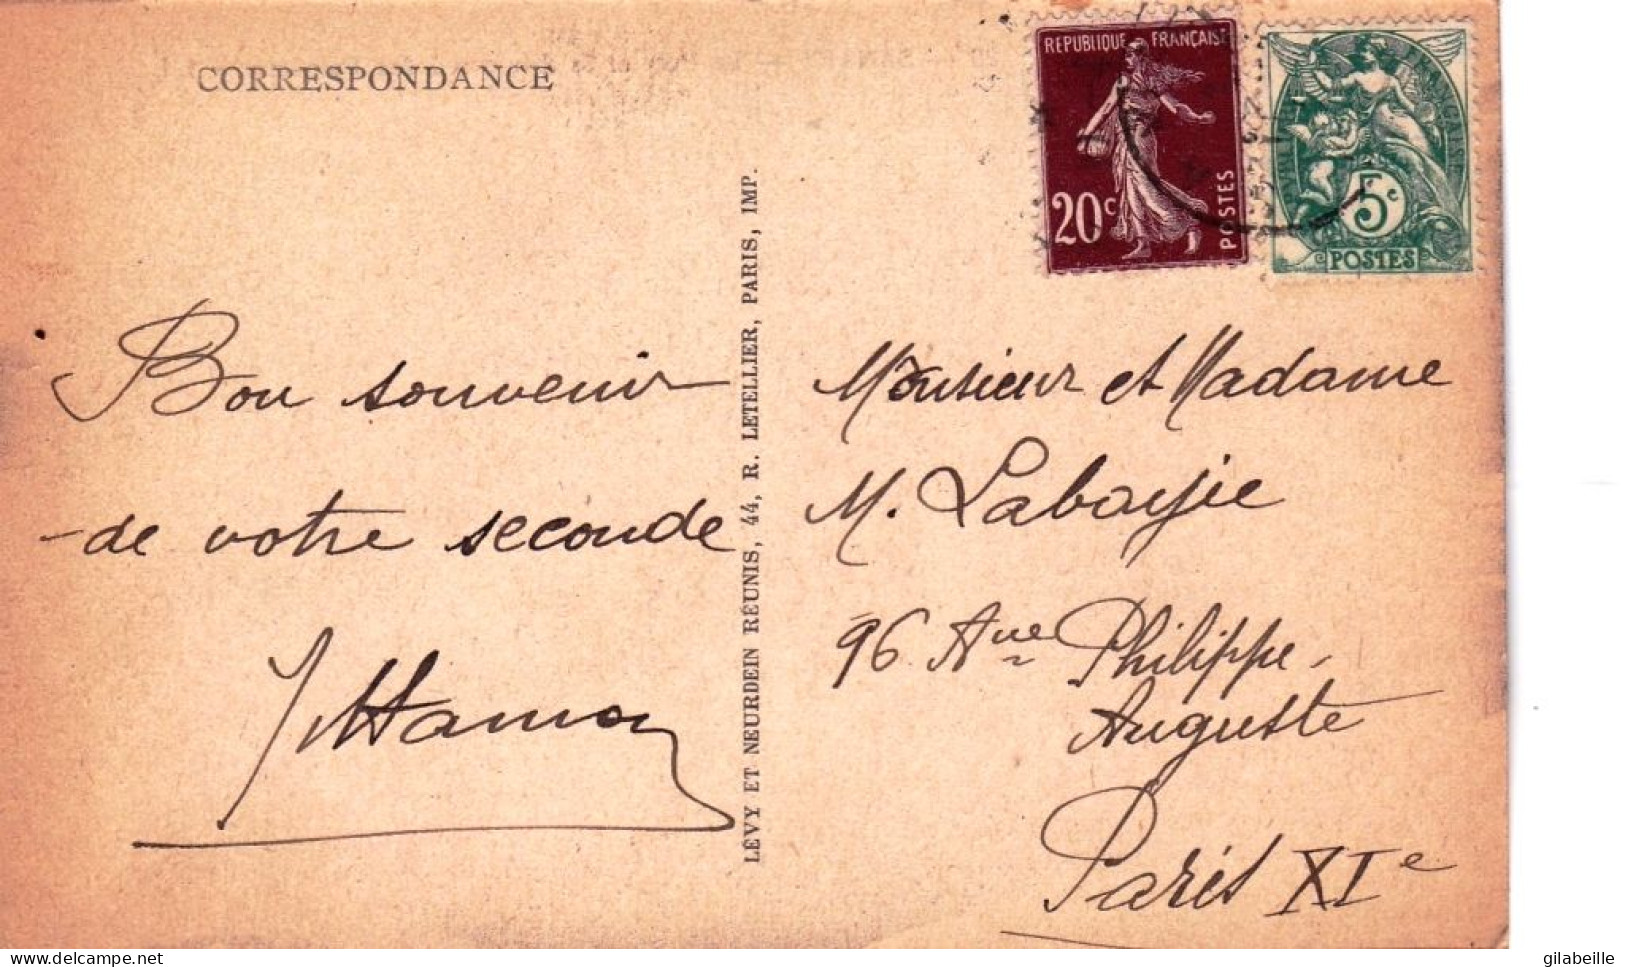 CORRESPONDANCE
REPUBLIQUE FRANÇAISE
20c
POSTES
5c
POSTES
Bon souvenir
de votre seconde
LÉVY ET NEURDEIN RÉUNIS, 44, R. LETELLIER, PARIS, IMP.
Monsieur et Madame
M. Labayie
96 Aue Philippe-
Auguste
Paris XIe
gilabeille